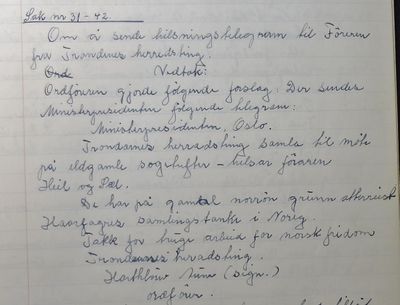 Sak nr 31-42.
Om å sende hilsningstelegram til Föreren
fra Trondenes herredsting.
Ord Vedtak:
Ordföreren gjorde følgende forslag: Der sendes
Ministerpresidenten følgende telegram:
Ministerpresidenten, Oslo.
Trondarnes herradsting samla til möte
på eldgamle sogetufter - helsar föraren
Heil og Sæl.
De har på gamal norrön grunn atterreist
Haarfagres samlingstanke i Norig.
Takk for trúge arbeid for norsk fridom
Trondarnes heradsting.
(sign.)
ordförer.